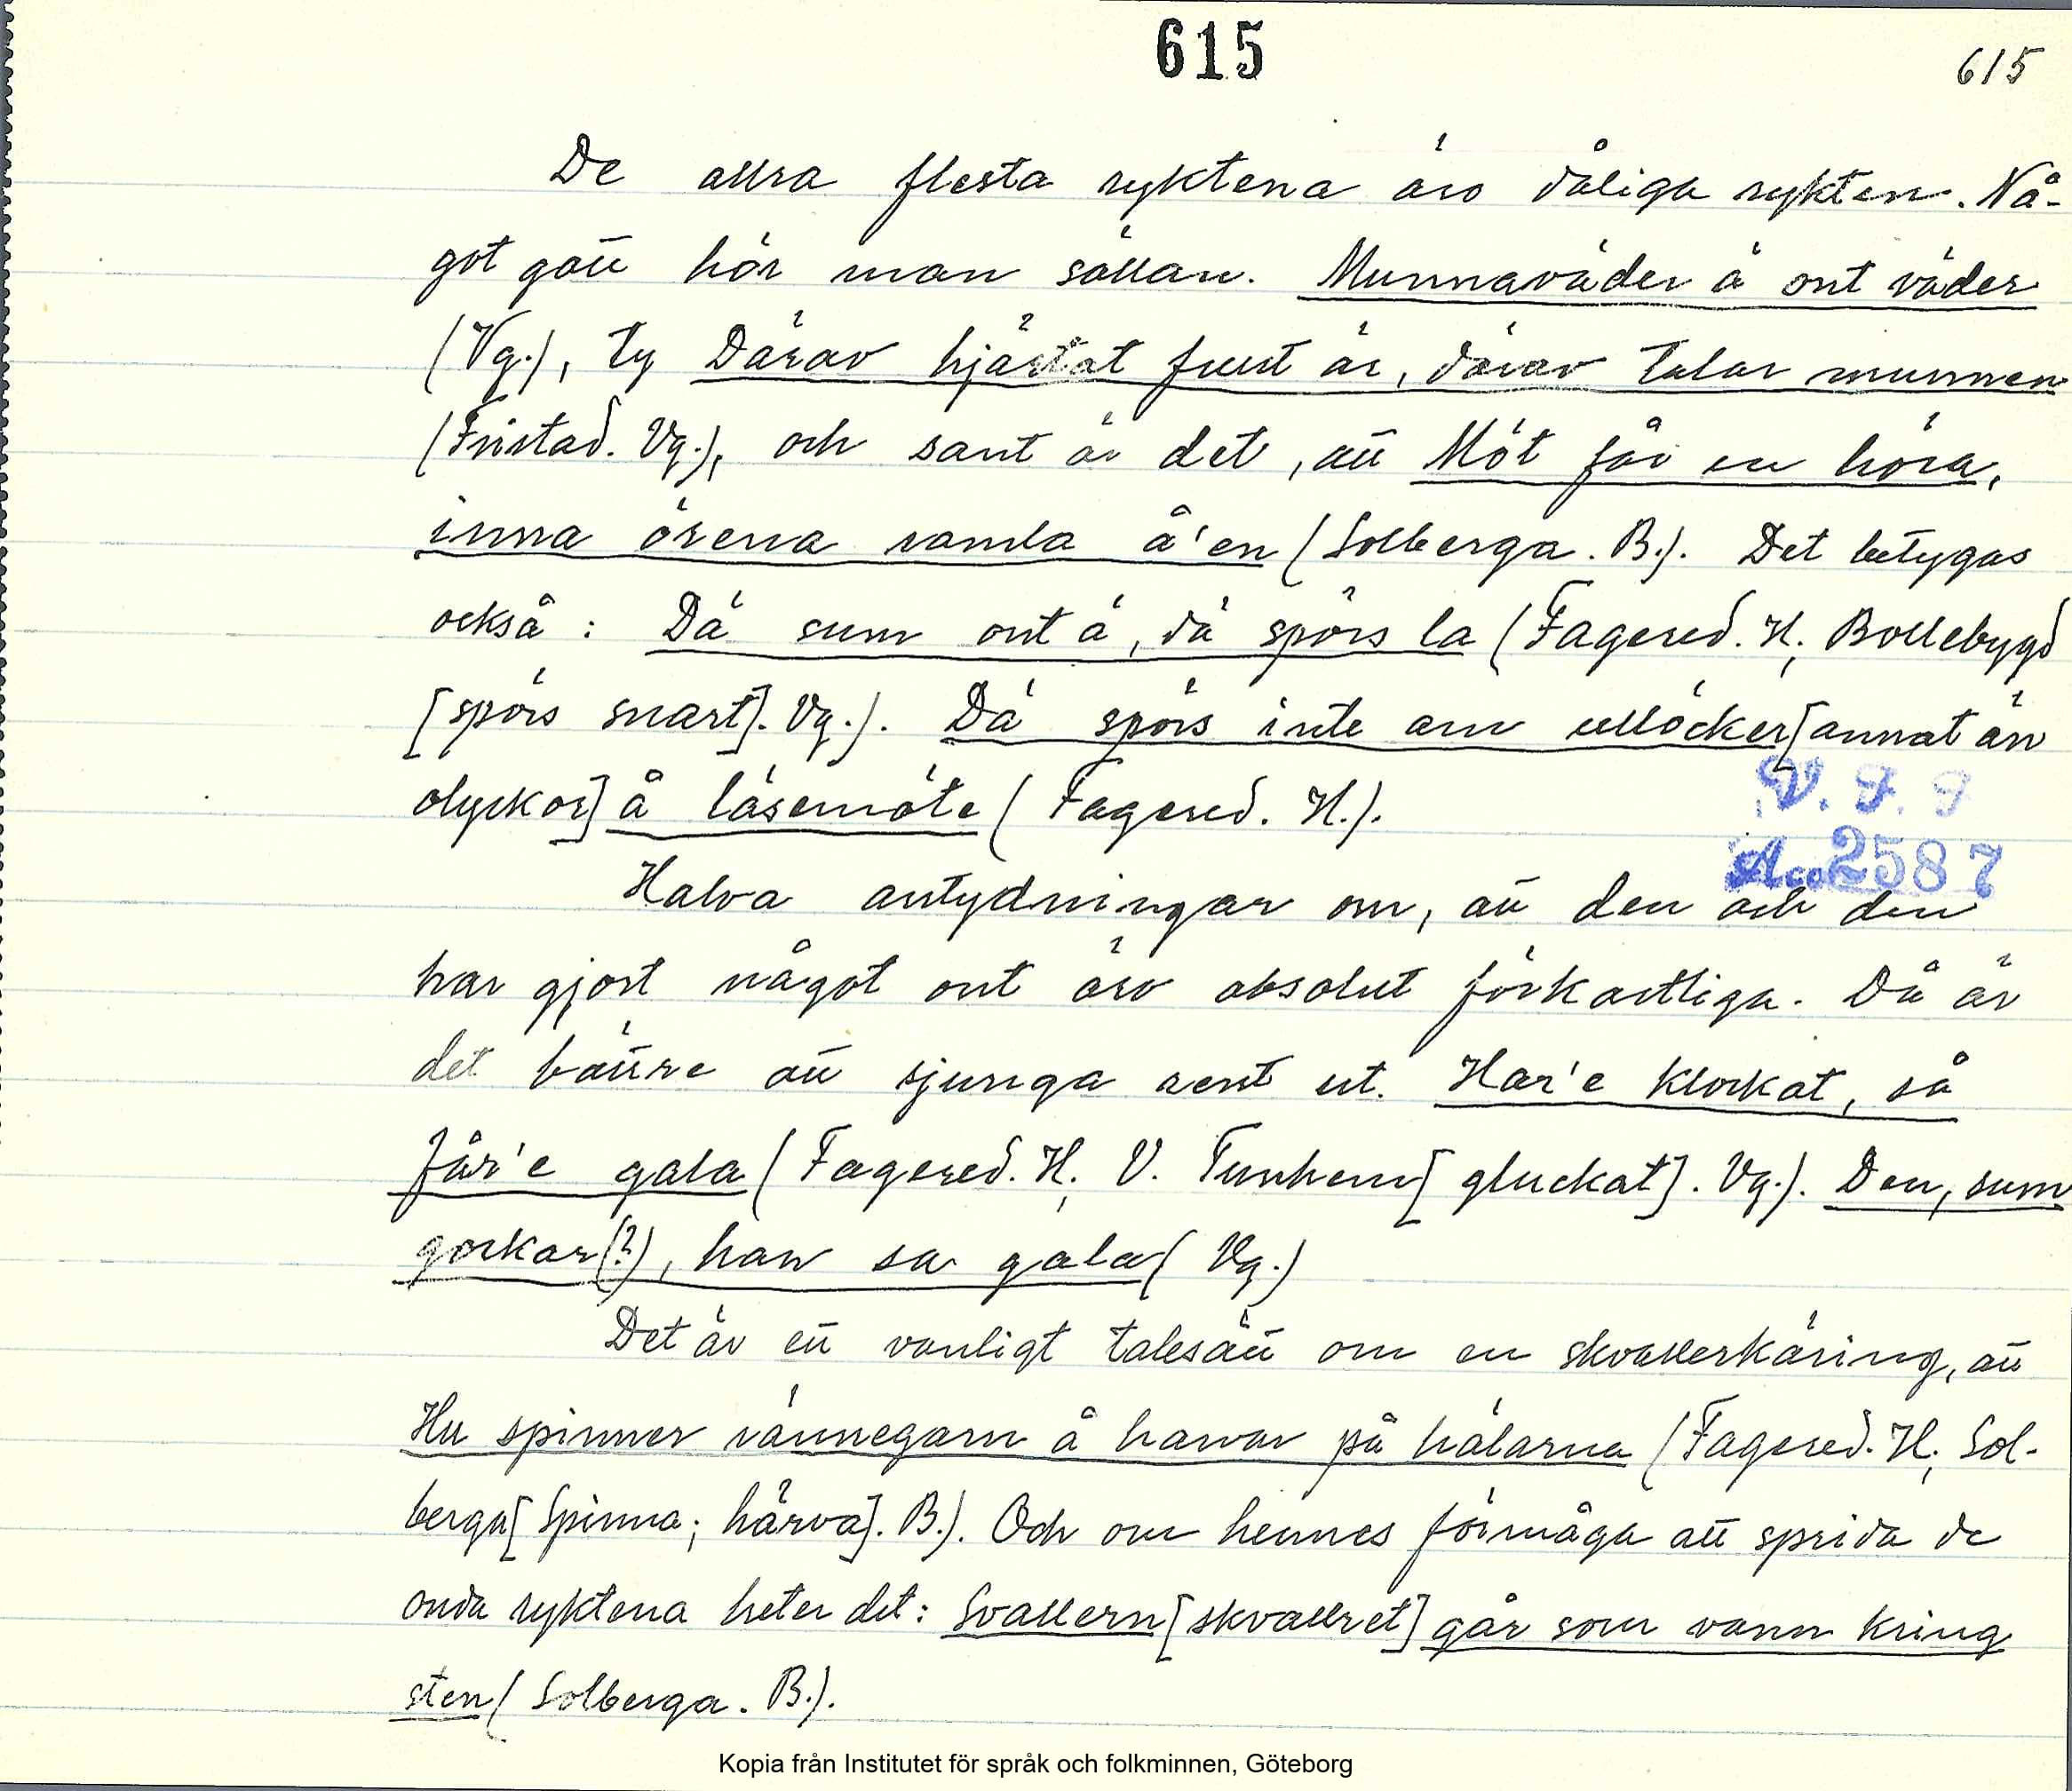 615
615
De allra flesta ryktena äro dåliga rykten. Nå-
got gott hör man sällan. Munnaväder ä ont väder
(Vg.), ty Därav hjärtat fullt är, därav talar munnen
(Fristad. Vg.), och sant är det, att Möt får en höra,
inna örena ramla å'en (Solberga. B.). Det betygas
också: Dä sum ont ä, dä spörs la (Fagered. H; Bollebygd
[spörs snart]. Vg.). Dä spörs inte am ullöcker [annat än
olyckor] å läsemöte (Fagered. H.).
V. F. G
Acc 2587
Halva antydningar om, att den och den
har gjort något ont äro absolut förkastliga. Då är
det bättre att sjunga rent ut. Har'e klockat, så
får'e gala (Fagered. H; V. Tunhem [gluckat]. Vg.). Den, sum
gockar (?), han sa gala (Vg.)
Det är ett vanligt talesätt om en skvallerkäring, att
Hu spinner rännegarn å harvar på hälarna (Fagered. H; Sol-
berga [Spinna; härva]. B.). Och om hennes förmåga att sprida de
onda ryktena heter det: Svallern [skvallret] går som vann kring
sten (Solberga. B.).
Kopia från Institutet för språk och folkminnen, Göteborg